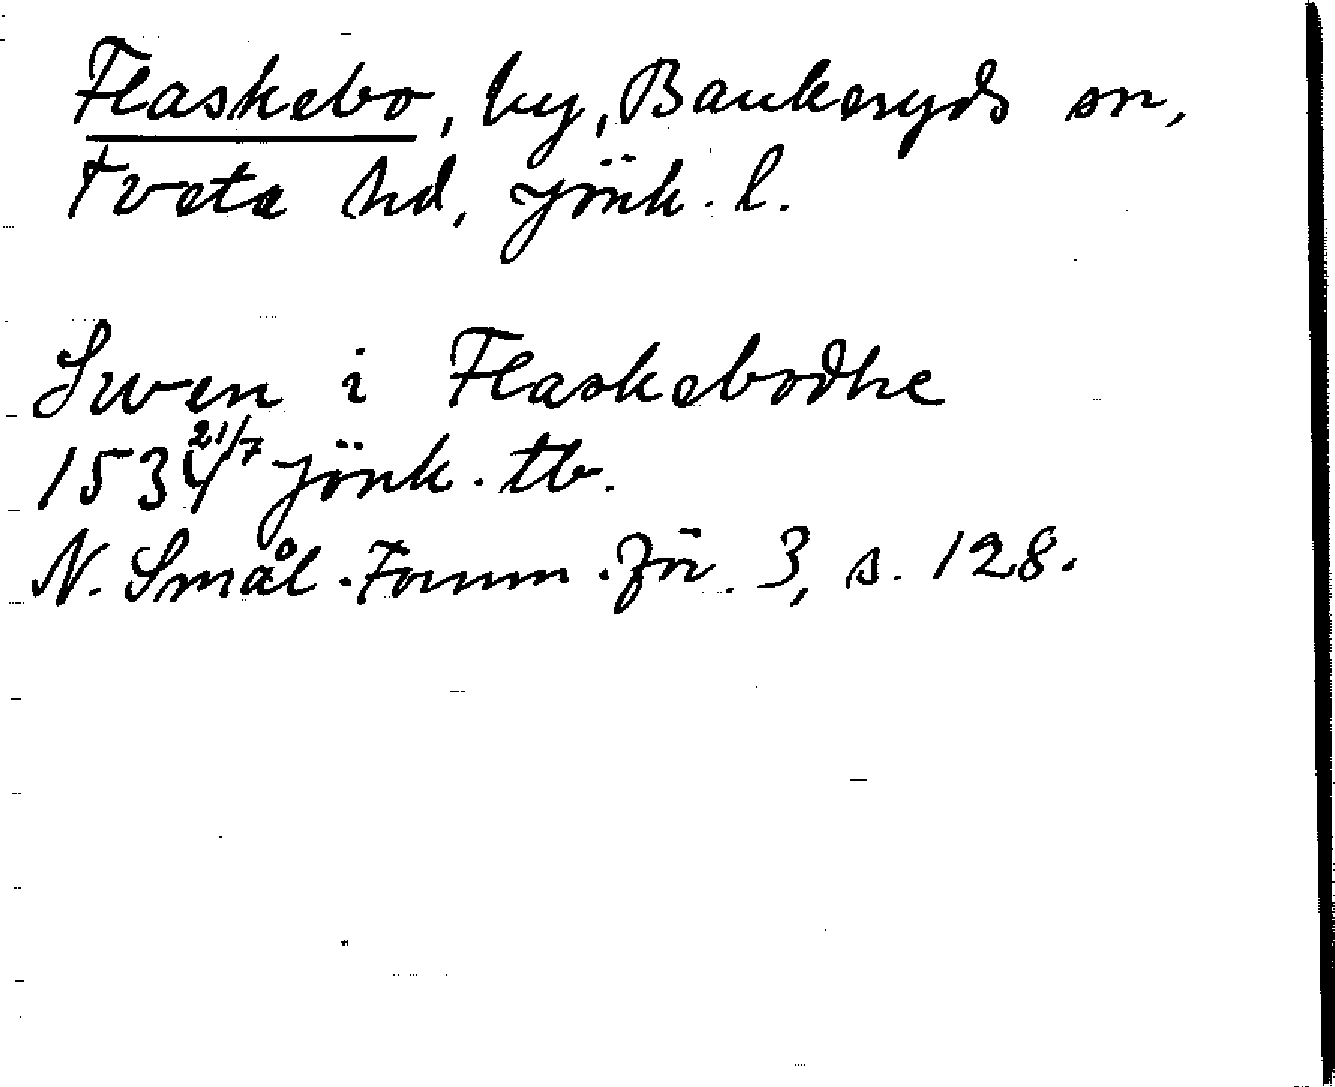 Flaskebo, by, Bankeryds sn,
Tveta hd, Jönk. l.
Swen i Flaskebodhe
1534 21/7 Jönk. tb.
N. Smål. Fornm. för. 3, s. 128.